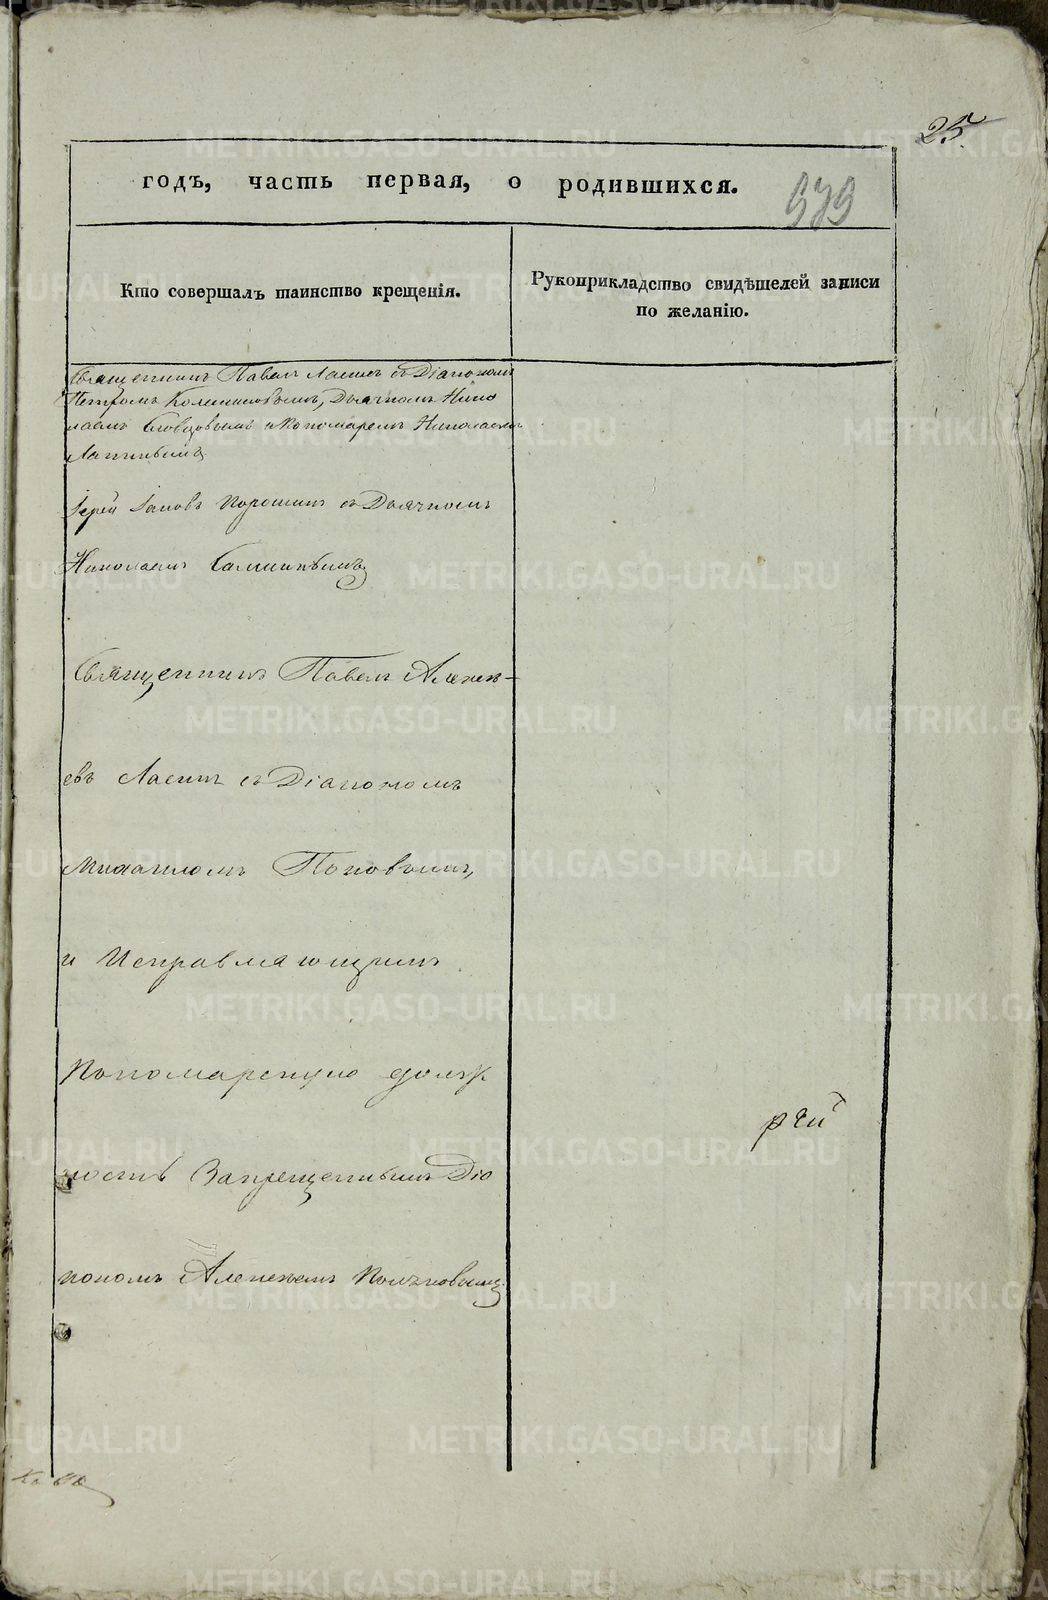 25.
годъ, часть первая, о родившихся.
979
Кто совершалъ таинство крещенія.
Рукоприкладство свидѣтелей записи
по желанію.
Священникъ Павелъ с Діакономъ
Петромъ Дьячкомъ Нико
лаемъ Словцовымъ и Пономаремъ Николаемъ
Лапинымъ
Іерей Іаковъ Порошинъ съ Дьячкомъ
Николаемъ
Священникъ Павелъ Алексѣ-
евъ съ Діакономъ
Михаиломъ Поповымъ,
и Исправляющимъ
Пономарскую долж
ность Запрещеннымъ Діа
кономъ Алексѣемъ
METRIKI.GASO-URAL.RU